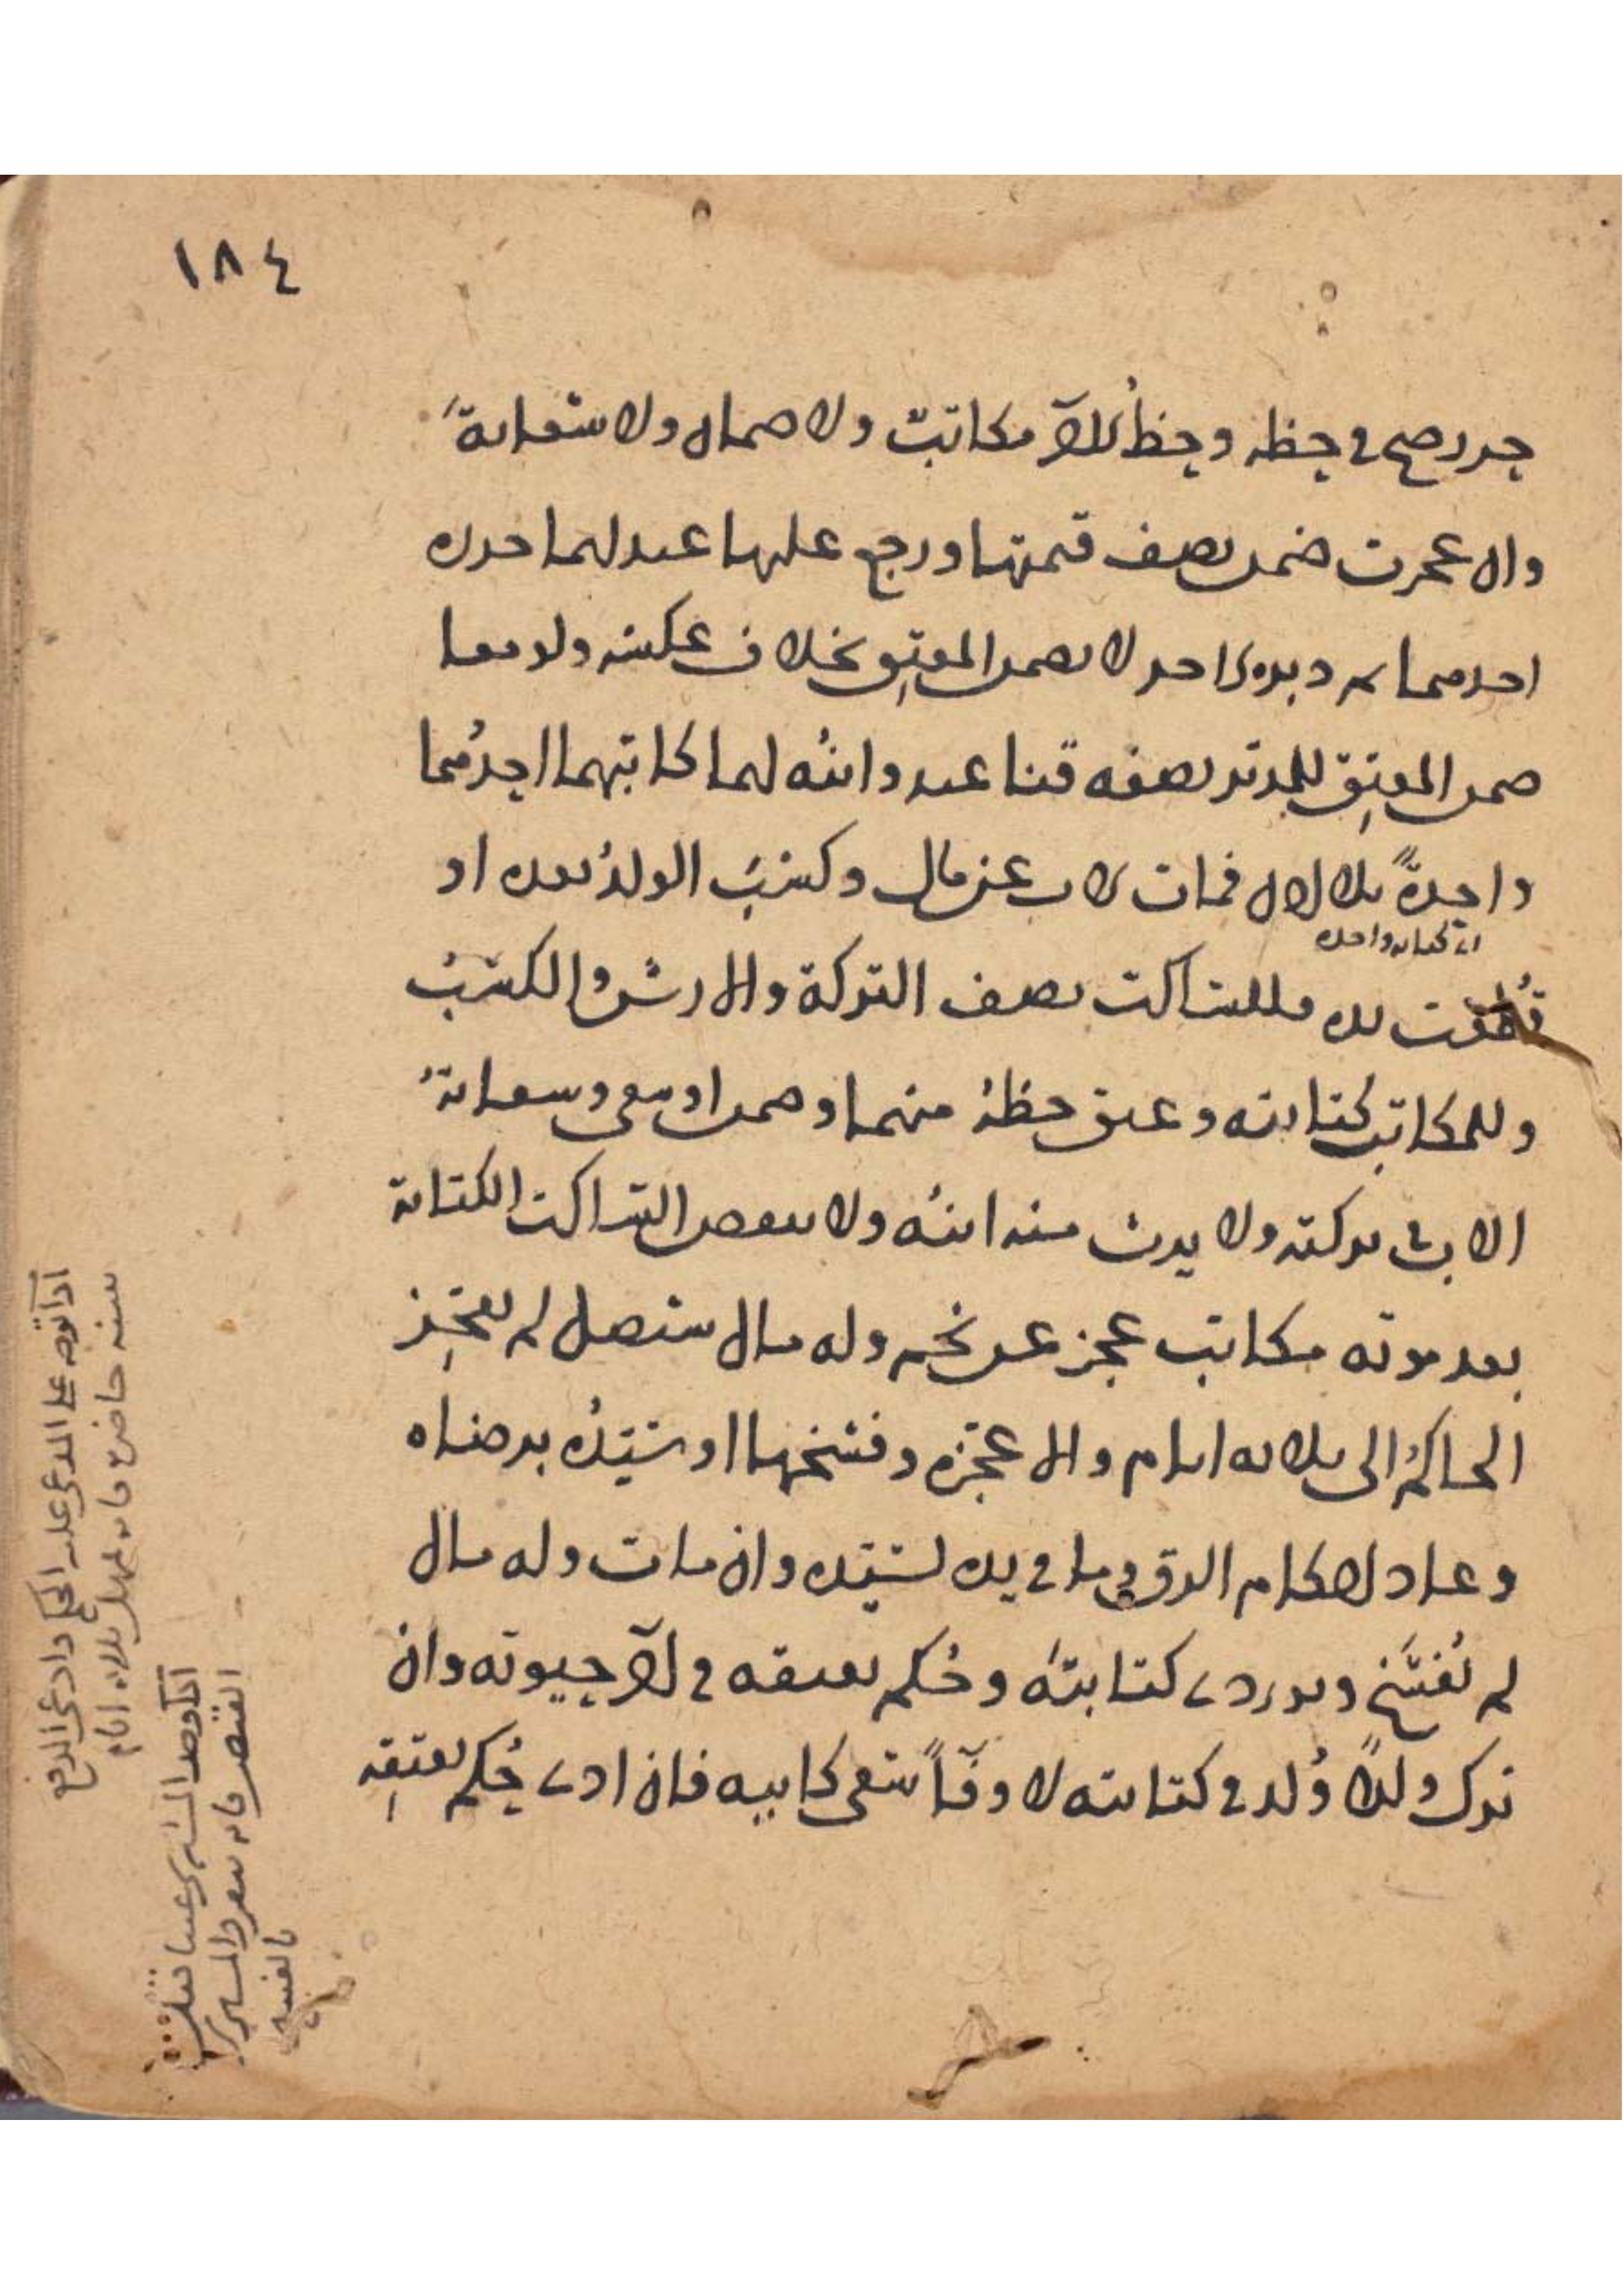 ١٨٤
حرر صح في حظه وحظ الآخر مكاتب ولا ضمان ولا سعاية
وان عجزت ضمن نصف قيمتها ورجع عليها عبد لهما حرره
احدهما ثم دبره الاخر لا يضمن المعتق بخلاف عكسه ولو معا
ضمن المعتق للمدبر نصفه قنا عبد وابنه لهما كاتبهما احدهما
واحدة بلا اذن فمات الاب عن مال وكسب الولد بعده او
اي كتابة واحدة
قطعت يده فللساكت نصف التركة والارش والكسب
وللمكاتب كتابته وعتق حظه منهما وضمن او سعى وسعاية
الاب في تركته ولا يرث منه ابنه ولا ينقض الساكت الكتابة
بعد موته مكاتب عجز عن نجم وله مال سيصل لم يعجز
الحاكم الى ثلاثة ايام والا عجزه وفسخها او سيده برضاه
وعاد احكام الرق وما في يده لسيده وان مات وله مال
لم تفسخ وتودى كتابته وحكم بعتقه في آخر حيوته وان
ترك ولدا ولد في كتابته لا وفآ سعى كابيه فان ادى حكم بعتقه
اذا توجه على المدعى عليه الحكم وادعى الدفع
ببينة حاضرة فانه يمهل ثلاثة ايام